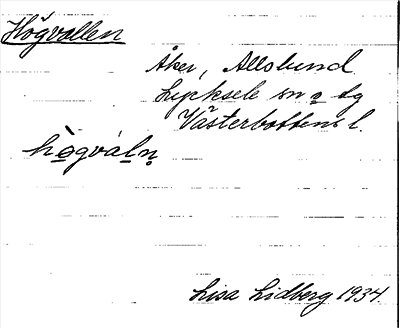 Högvallen
Åker, Allslund
Lycksele sn o tg
Västerbottens l.
hògváln̥
Lisa Lidberg 1934.